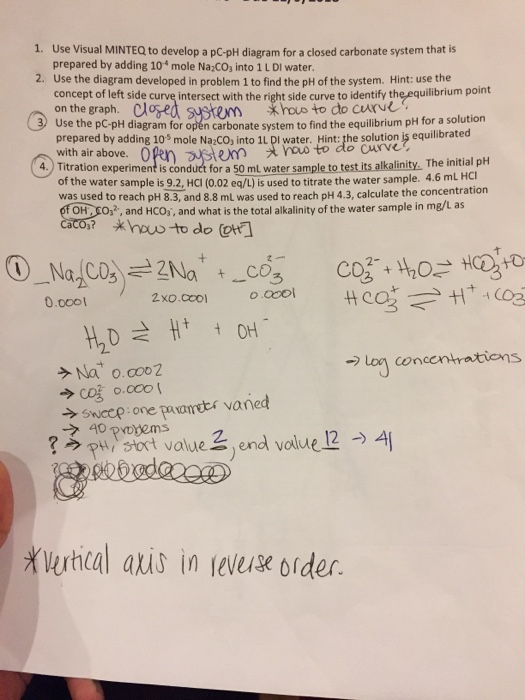 1. Use Visual MINTEQ to develop a pC-pH diagram for a closed carbonate system that is
prepared by adding 10⁻⁴ mole Na₂CO₃ into 1 L DI water.
2. Use the diagram developed in problem 1 to find the pH of the system. Hint: use the
concept of left side curve intersect with the right side curve to identify the equilibrium point
on the graph. Closed system *how to do curve?
3. Use the pC-pH diagram for open carbonate system to find the equilibrium pH for a solution
prepared by adding 10⁻⁵ mole Na₂CO₃ into 1L DI water. Hint: the solution is equilibrated
with air above. Open system *how to do curve?
4. Titration experiment is conduct for a 50 mL water sample to test its alkalinity. The initial pH
of the water sample is 9.2, HCl (0.02 eq/L) is used to titrate the water sample. 4.6 mL HCl
was used to reach pH 8.3, and 8.8 mL was used to reach pH 4.3, calculate the concentration
of OH⁻, CO₃²⁻, and HCO₃⁻, and what is the total alkalinity of the water sample in mg/L as
CaCO₃? *how to do [OH⁻]
① _Na₂(CO₃) ⇌ 2Na⁺ + _CO₃²⁻
0.0001 2x0.0001 0.0001
CO₃²⁻ + H₂O ⇌ HCO₃⁺ + O
HCO₃⁺ ⇌ H⁺ + CO3
H₂O ⇌ H⁺ + OH⁻
→ Na⁺ 0.0002
→ log concentrations
→ CO₃²⁻ 0.0001
→ sweep: one parameter varied
→ 40 problems
? → pH, start value 2, end value 12 → 41
*vertical axis in reverse order.